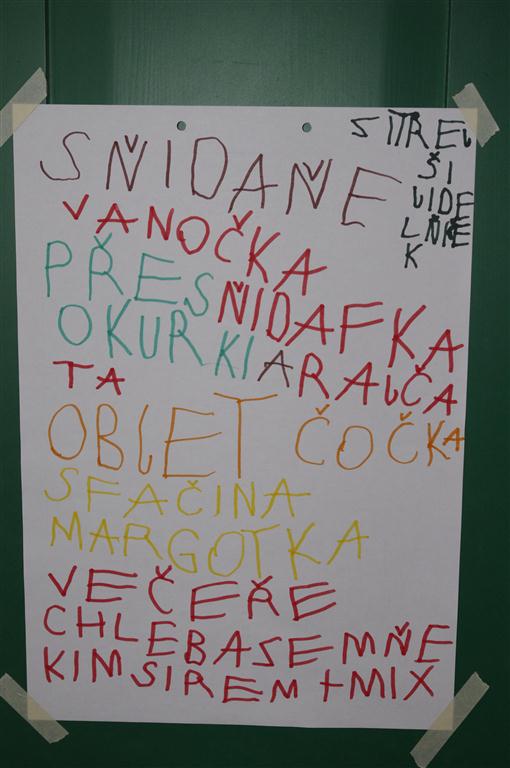 SŇIDAŇE
VANOČKA
PŘESŇIDAFKA
OKURKI ARAJČA
TA
OBJET ČOČKA
SFAČINA
MARGOTKA
VEČEŘE
CHLEBASEMŇE
KIMSIREM +MIX
SITREJ
ŠI
JIDE
K